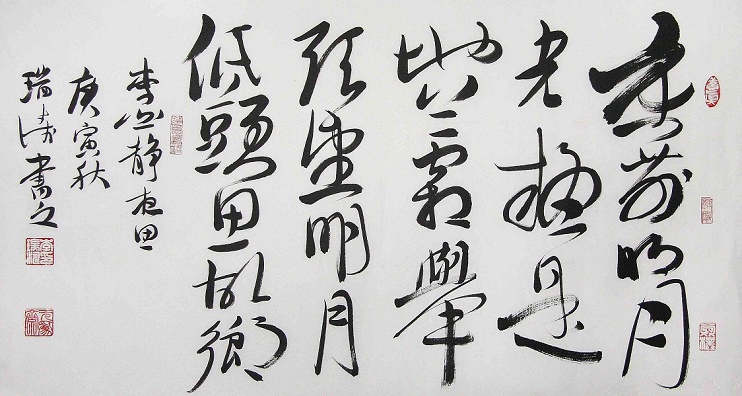 床前明月
光疑是
地上霜舉
頭望明月
低頭思故鄉
李白静夜思
庚寅秋
瑞涛書之